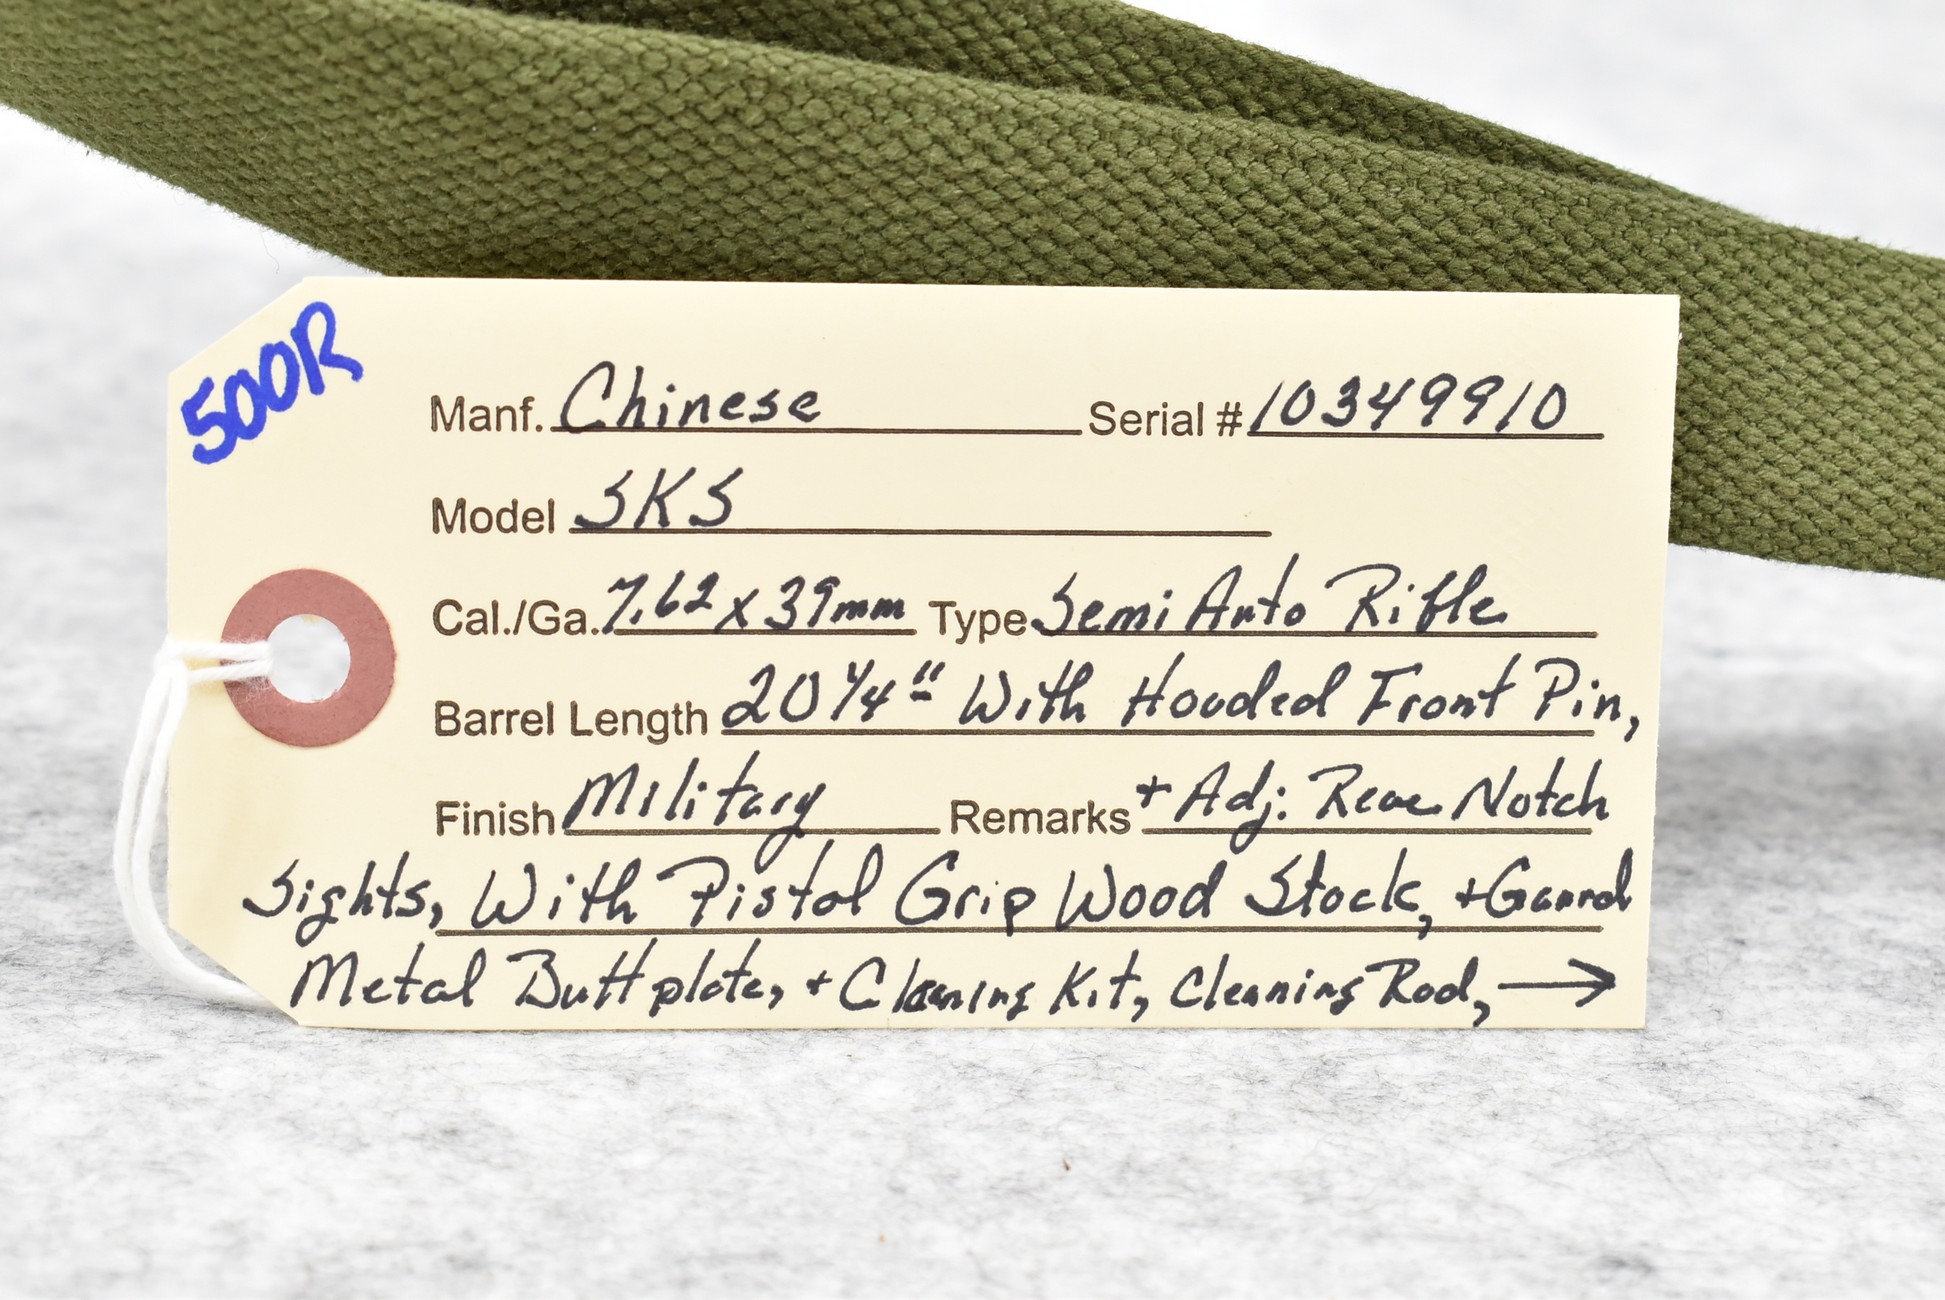 500R
Manf. Chinese Serial # 10349910
Model SKS
Cal./Ga. 7.62 x 39mm Type Semi Auto Rifle
Barrel Length 20 1/4" With Hooded Front Pin,
Finish Military Remarks + Adj. Rear Notch
Sights, With Pistol Grip Wood Stock, + Guard
Metal Buttplate, + Cleaning Kit, Cleaning Rod, →